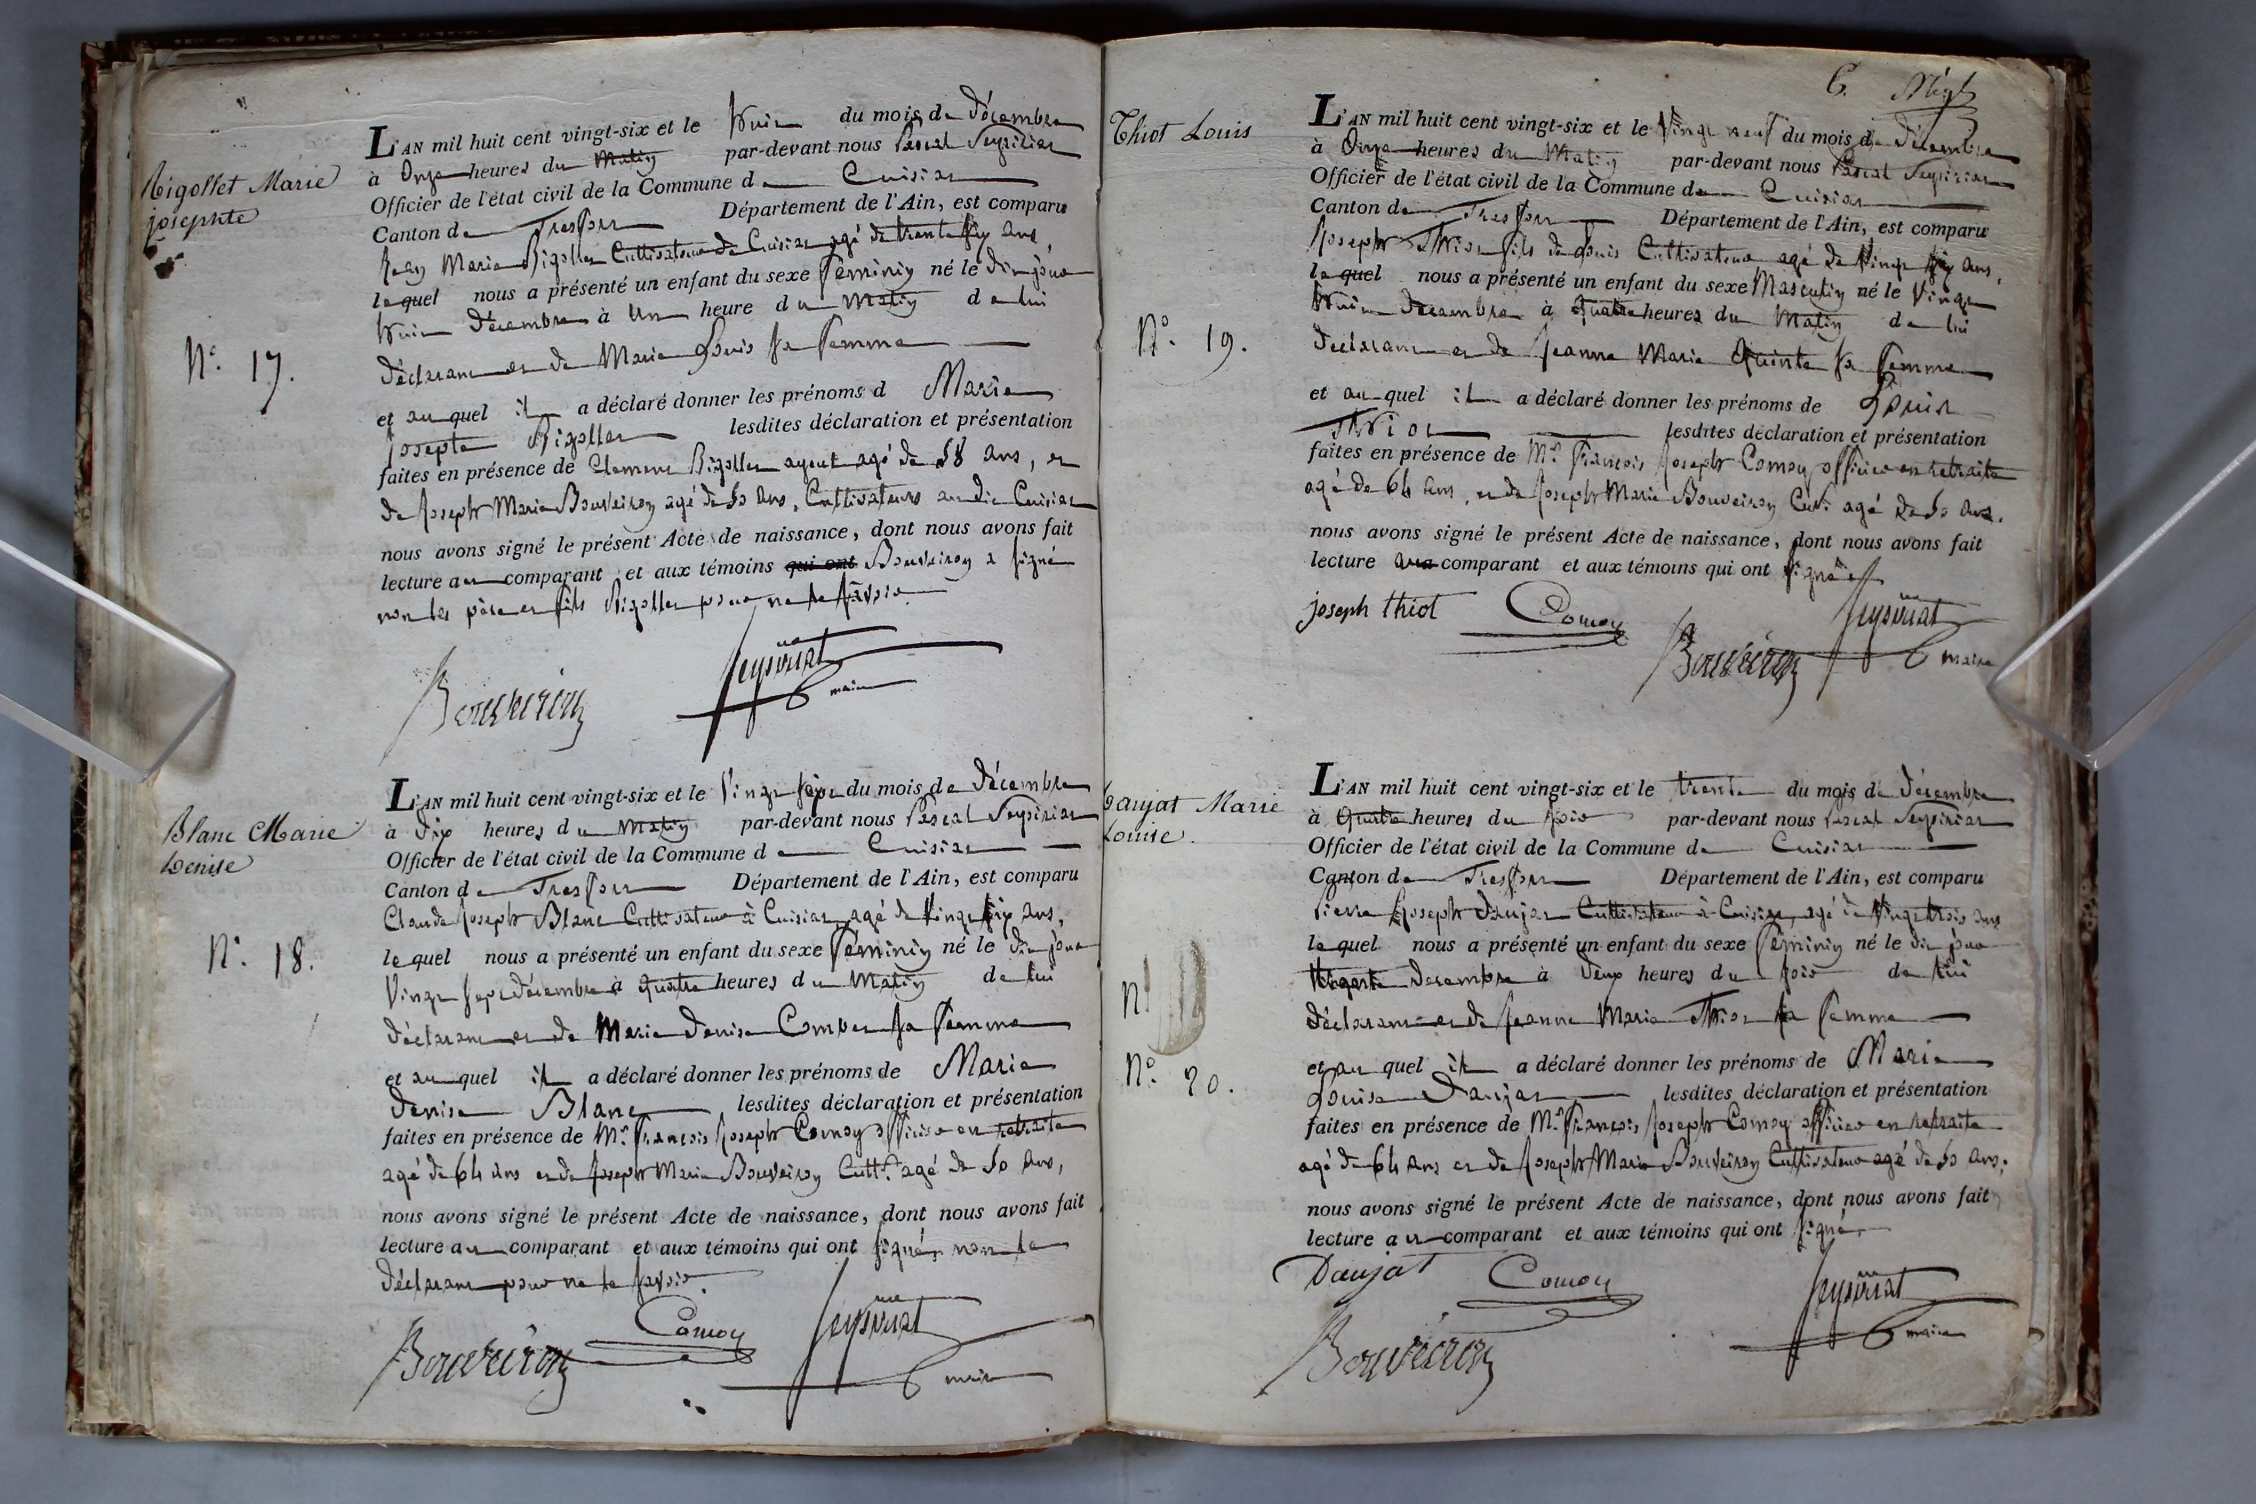 Rigollet Marie
josephte
N.° 17.
L'AN mil huit cent vingt-six et le huit du mois de décembre
à onze heures du matin par-devant nous Pascal Seysiriat
Officier de l'état civil de la Commune de Cuisiat
Canton de Treffort Département de l'Ain, est comparu
Jean Marie Rigollet Cultivateur de Cuisiat agé de trente six ans,
lequel nous a présenté un enfant du sexe féminin né le dit jour
huit décembre à une heure du matin de lui
déclarant et de Marie Louis sa femme
et auquel il a déclaré donner les prénoms d Marie
Josepte Rigollet lesdites déclaration et présentation
faites en présence de Clement Rigollet ayeul agé de 58 ans, et
de Joseph Marie Bouveiron agé de 50 ans, Cultivateurs au dit Cuisiat
nous avons signé le présent Acte de naissance, dont nous avons fait
lecture au comparant et aux témoins qui ont Bouveiron a signé
non les père et fils Rigollet pour ne le savoir.
Bouveiron Seysiriat maire
Blanc Marie
Denise
N.° 18.
L'AN mil huit cent vingt-six et le vingt sept du mois de décembre
à dix heures du matin par-devant nous Pascal Seysiriat
Officier de l'état civil de la Commune de Cuisiat
Canton de Treffort Département de l'Ain, est comparu
Claude Joseph Blanc Cultivateur à Cuisiat, agé de vingt six ans,
lequel nous a présenté un enfant du sexe féminin né le dit jour
vingt sept décembre à quatre heures du matin de lui
déclarant et de Marie Denise Combet sa femme
et auquel il a déclaré donner les prénoms de Marie
denise Blanc lesdites déclaration et présentation
faites en présence de Mr. François Joseph Comoy officier en retraite
agé de 64 ans et de Joseph Marie Bouveiron Cultr. agé de 50 ans,
nous avons signé le présent Acte de naissance, dont nous avons fait
lecture au comparant et aux témoins qui ont signé, non le
déclarant pour ne le savoir.
Bouveiron Comoy Seysiriat maire
6.
Thiot Louis
N.° 19.
L'AN mil huit cent vingt-six et le vingt neuf du mois de décembre
à onze heures du matin par-devant nous Pascal Seysiriat
Officier de l'état civil de la Commune de Cuisiat
Canton de Treffort Département de l'Ain, est comparu
Joseph Thiot fils de Louis Cultivateur agé de vingt six ans,
lequel nous a présenté un enfant du sexe masculin né le vingt
huit décembre à quatre heures du matin de lui
déclarant et de Jeanne Marie Quinte sa femme
et auquel il a déclaré donner les prénoms de Louis
Thiot lesdites déclaration et présentation
faites en présence de Mr. François Joseph Comoy officier en retraite
agé de 64 ans, et de Joseph Marie Bouveiron Cult. agé de 50 ans.
nous avons signé le présent Acte de naissance, dont nous avons fait
lecture au comparant et aux témoins qui ont signé
joseph thiot Comoy Bouveiron Seysiriat maire
Daujat Marie
Louise.
N.° 20.
L'AN mil huit cent vingt-six et le trente du mois de décembre
à quatre heures du soir par-devant nous Pascal Seysiriat
Officier de l'état civil de la Commune de Cuisiat
Canton de Treffort Département de l'Ain, est comparu
Pierre Joseph Daujat Cultivateur à Cuisiat, agé de vingt trois ans
lequel nous a présenté un enfant du sexe féminin né le dit jour
trente décembre à deux heures du soir de lui
déclarant et de Jeanne Marie Thiot sa femme
et auquel il a déclaré donner les prénoms de Marie
Louise Daujat lesdites déclaration et présentation
faites en présence de Mr. François Joseph Comoy officier en retraite
agé de 64 ans et de Joseph Marie Bouveiron Cultivateur agé de 50 ans.
nous avons signé le présent Acte de naissance, dont nous avons fait
lecture au comparant et aux témoins qui ont signé.
Daujat Comoy Seysiriat maire
Bouveiron